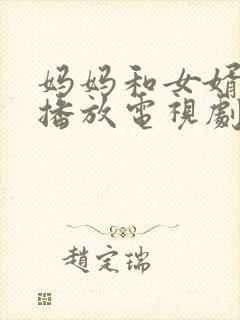 妈妈和女婿
播放電視劇
趙定瑞